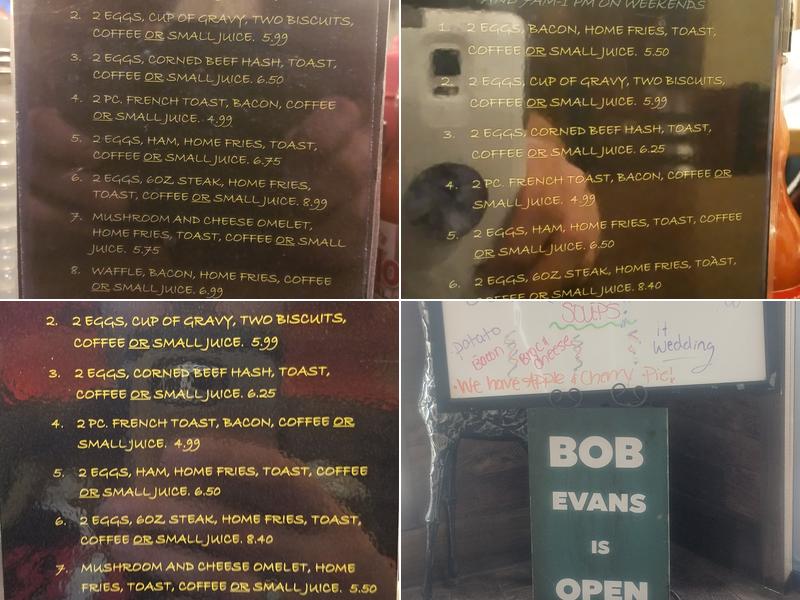 2. 2 EGGS, CUP OF GRAVY, TWO BISCUITS,
COFFEE OR SMALL JUICE. 5.99
3. 2 EGGS, CORNED BEEF HASH, TOAST,
COFFEE OR SMALL JUICE. 6.50
4. 2 PC. FRENCH TOAST, BACON, COFFEE
OR SMALL JUICE. 4.99
5. 2 EGGS, HAM, HOME FRIES, TOAST,
COFFEE OR SMALL JUICE. 6.75
6. 2 EGGS, 6OZ STEAK, HOME FRIES,
TOAST, COFFEE OR SMALL JUICE. 8.99
7. MUSHROOM AND CHEESE OMELET,
HOME FRIES, TOAST, COFFEE OR SMALL
JUICE. 5.75
8. WAFFLE, BACON, HOME FRIES, COFFEE
OR SMALL JUICE. 6.99
AND 7AM-1 PM ON WEEKENDS
1. 2 EGGS, BACON, HOME FRIES, TOAST,
COFFEE OR SMALL JUICE. 5.50
2. 2 EGGS, CUP OF GRAVY, TWO BISCUITS,
COFFEE OR SMALL JUICE. 5.99
3. 2 EGGS, CORNED BEEF HASH, TOAST,
COFFEE OR SMALL JUICE. 6.25
4. 2 PC. FRENCH TOAST, BACON, COFFEE OR
SMALL JUICE. 4.99
5. 2 EGGS, HAM, HOME FRIES, TOAST, COFFEE
OR SMALL JUICE. 6.50
6. 2 EGGS, 6OZ STEAK, HOME FRIES, TOAST,
COFFEE OR SMALL JUICE. 8.40
2. 2 EGGS, CUP OF GRAVY, TWO BISCUITS,
COFFEE OR SMALL JUICE. 5.99
3. 2 EGGS, CORNED BEEF HASH, TOAST,
COFFEE OR SMALL JUICE. 6.25
4. 2 PC. FRENCH TOAST, BACON, COFFEE OR
SMALL JUICE. 4.99
5. 2 EGGS, HAM, HOME FRIES, TOAST, COFFEE
OR SMALL JUICE. 6.50
6. 2 EGGS, 6OZ STEAK, HOME FRIES, TOAST,
COFFEE OR SMALL JUICE. 8.40
7. MUSHROOM AND CHEESE OMELET, HOME
FRIES, TOAST, COFFEE OR SMALL JUICE. 5.50
SOUPS:
potato
Bacon
cheese
it
wedding
We have Apple & Cherry Pie!
BOB
EVANS
IS
OPEN